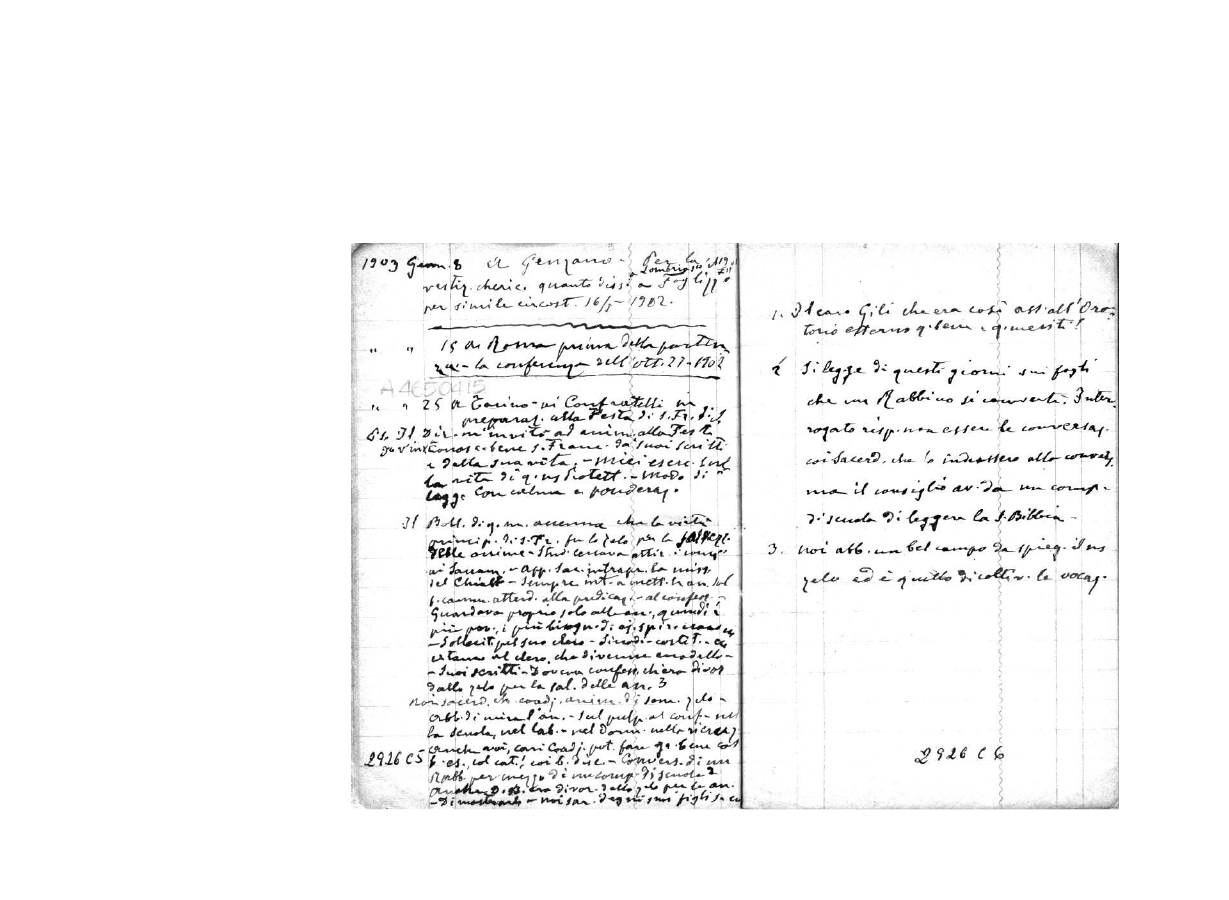 1903 Genn. 8 A Genzano - Per la
vestiz. cheric. quanto dissi a Foglizzo
per simile circost. 16/5 1902.
" " 15 A Roma prima della parten
za - la conferenza dell'ott. 27-1902
A4650415
" " 25 A Torino - ai Confratelli in
preparaz. alla Festa di S. Fr. di S.
Es. Il Dir. m'invitò ad anim. alla Festa
Conosc. bene S. Franc. da' suoi scritti
e dalla sua vita, - miei eserc. sul
la vita di q. ns Protett. - modo di
legg. con calma e ponderaz.
Il Boll. di q. m. accenna che la virtù
princip. di S. Fr. fu lo zelo per la
delle anime - Stud. cercava
ai Sacram. - App. sac. intrapr. la miss.
del Chiabl - sempre int. a mett. le an. sul
attend. alla predicaz. - al confess. -
Guardava proprio solo alle an., quindi i
più pov., i più bisogn. di aj. spir.
- Sollecit. pel suo clero - Sinodi -
al clero, che divenne modello -
- Suoi scritti - Doveva confess. ch'era divor
dallo zelo per la sal. delle an. 3
Noi sacerd. ch. coadj. anim. di som. zelo -
abb. di mira l'an. - sul pulp. al conf - nel
la scuola, nel lab. - nel dorm. nella ricreaz
anche voi, cari Coadj. pot. fare q. bene
2926 C5 b. es. col cat. coi b. disc. - Convers. di un
Rabb. per mezzo di un comp. di scuola 2
Anche D. B. era divor. dallo zelo per le an.
- Dimostrarlo - noi sar. degni suoi figli se
1. Il caro Gili che era così ass. all'Ora-
torio esterno q. bene e q. meriti!
2 Si legge di questi giorni sui fogli
che un Rabbino si convertì. Inter-
rogato risp. non essere le conversaz.
coi Sacerd. che lo indussero alla convers.
ma il consiglio av. da un comp.
di scuola di leggere la S. Bibbia -
3. Noi abb. un bel campo da spieg. il ns
zelo ed è quello di coltiv. le vocaz.
2926 C 6